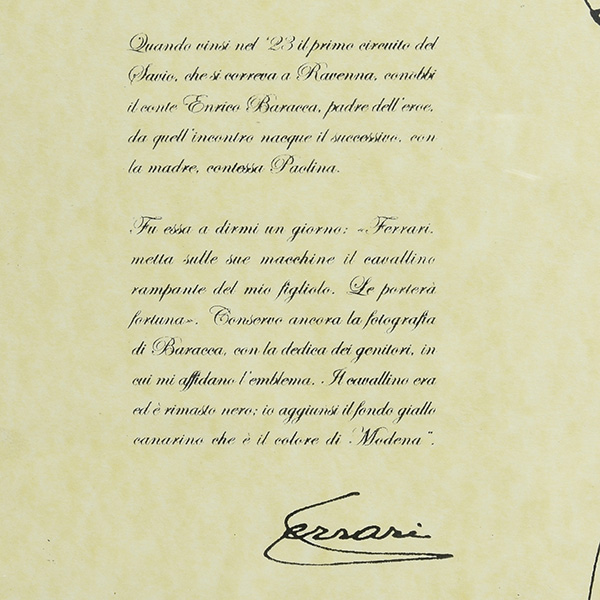 Quando vinsi nel '23 il primo circuito del
Savio, che si correva a Ravenna, conobbi
il conte Enrico Baracca, padre dell'eroe,
da quell'incontro nacque il successivo, con
la madre, contessa Paolina.
Fu essa a dirmi un giorno: «Ferrari,
metta sulle sue macchine il cavallino
rampante del mio figliolo. Le porterà
fortuna». Conservo ancora la fotografia
di Baracca, con la dedica dei genitori, in
cui mi affidano l'emblema. Il cavallino era
ed è rimasto nero; io aggiunsi il fondo giallo
canarino che è il colore di Modena".
Ferrari